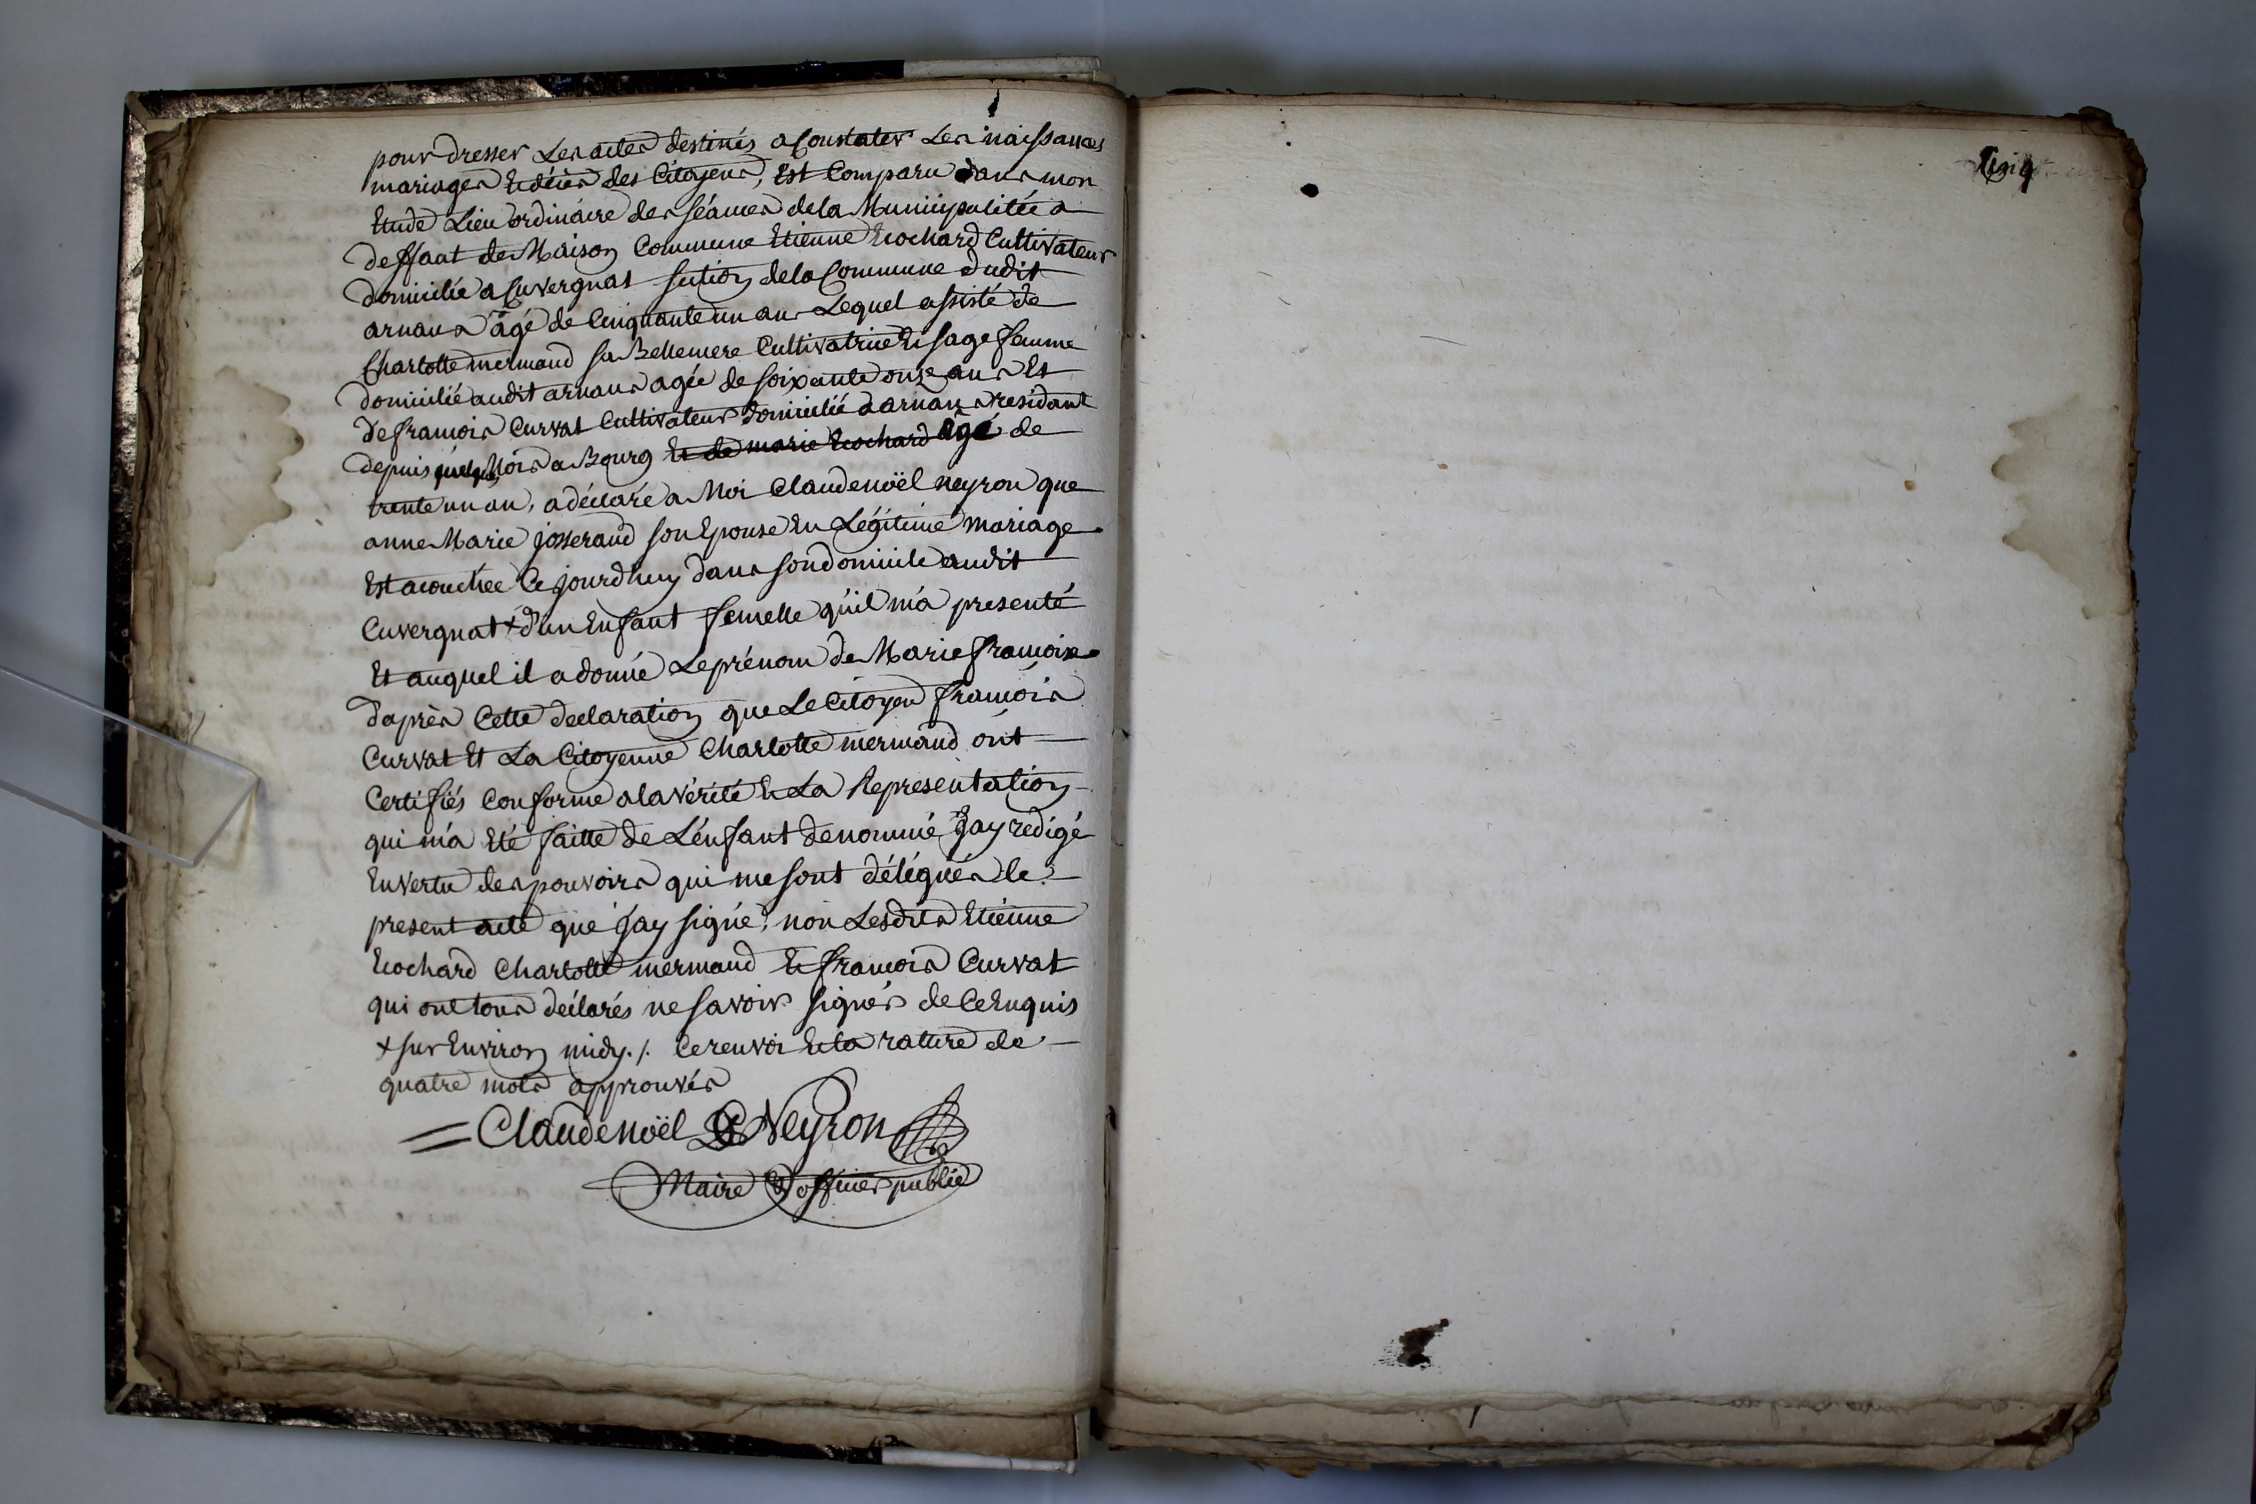 pour dresser les actes destinés a Constater les naissances
mariages et décès des Citoyens, Est Comparu dans mon
Etude Lieu ordinaire des séances de la Municipalitée a
deffaut de Maison Commune Etienne Ecochard Cultivateur
domicilié a Cuvergnat section de la Commune dudit
arnans âgé de Cinquante un an Lequel assisté de
Charlotte mermand sa Bellemere Cultivatrice et sage femme
domicilié audit arnans agée de soixante onze ans Et
de francois Curvat Cultivateur domicilié a arnans residant
depuis quelq. Mois a Bourg et de marie Ecochard âgé de
trente un an, a déclaré a Moi Claude noël neyron que
anne Marie josserand son Epouse En Légitime mariage
Est acouchée Ce jourdhuy dans son domicile audit
Cuvergnat + d'un Enfant femelle qu'il m'a presenté
Et auquel il a donné Le prénom de Marie francoise
d'après Cette declaration que Le Citoyen francois
Curvat Et La Citoyenne Charlotte mermand ont
Certifiés Conforme a la vérité et La Representation
qui m'a Eté faitte de L'énfant denommé, Jay redigé
En vertu des pouvoirs qui me sont délégués le
present acte que Jay signé, non Lesdits Etienne
Ecochard Charlotte mermand et francois Curvat
qui ont tous déclarés ne savoir signér de Ce Enquis
+ sur Environ midy./. Ce renvoi et la rature de
quatre mots approuvés
Claude noël Neyron
Maire & officier public
Cinq